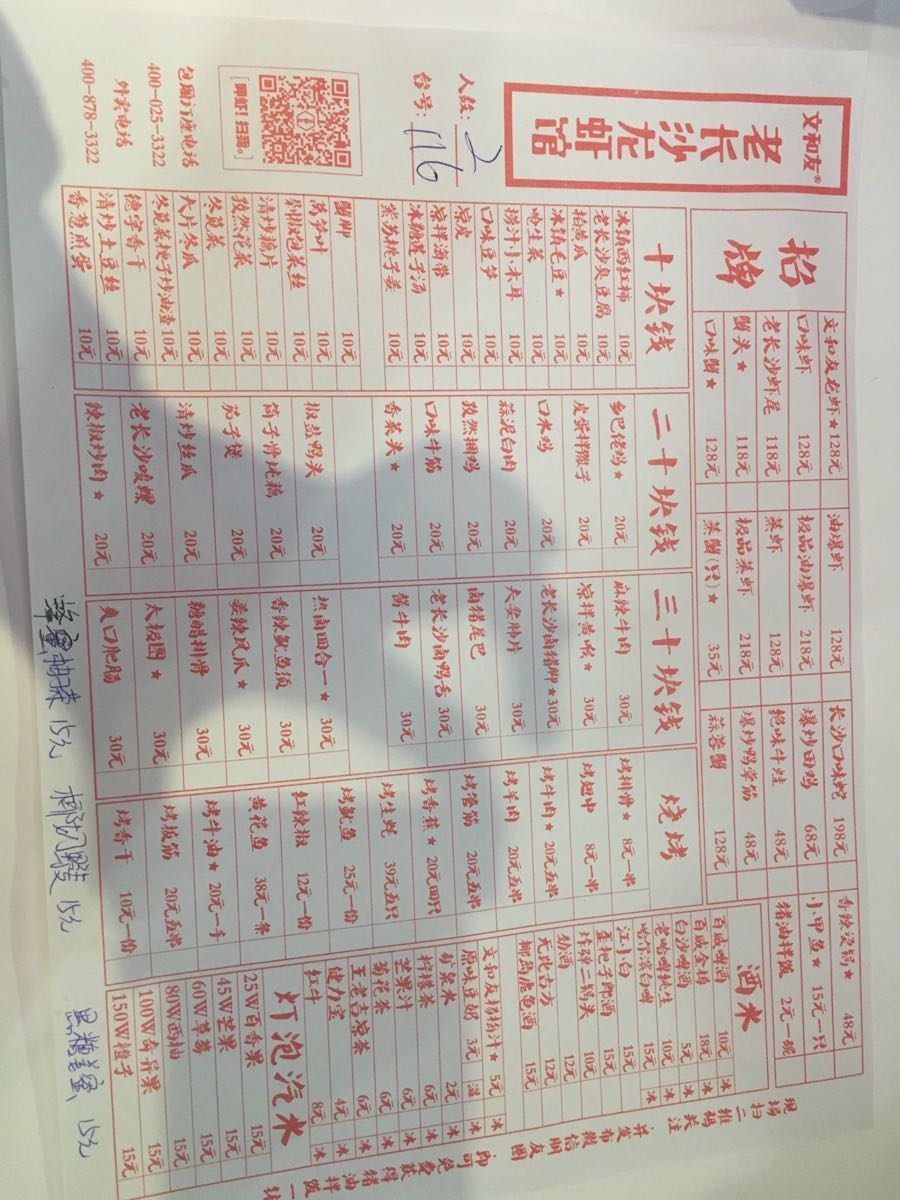 文和友®
老长沙龙虾馆
人数: 2
台号: 116
[闹虾! 扫我。]
包厢订座电话
400-025-3322
外卖电话
400-878-3322
招牌
文和友龙虾★ 128元
油爆虾 128元
长沙口味蛇 198元
香辣烫锅★ 48元
口味虾 128元
极品油爆虾 218元
爆炒田鸡 68元
小甲鱼★ 15元一只
老长沙虾尾 118元
蒸虾 128元
绝味牛蛙 48元
猪油拌饭 2元一碗
蟹头★ 118元
极品蒸虾 218元
爆炒鸭掌筋 48元
口味蟹★ 128元
蒸蟹(只)★ 35元
蒜蓉蟹 128元
十块钱
冰镇西红柿 10元
老长沙臭豆腐 10元
拍油瓜 10元
冰镇毛豆★ 10元
呛生菜 10元
捞汁小木耳 10元
口味豆笋 10元
凉皮 10元
凉拌海带 10元
冰糖莲子汤 10元
紫苏桃子姜 10元
蟹脚 10元
莴笋叶 10元
剁椒包菜丝 10元
清炒藕片 10元
孜然花菜 10元
冬苋菜 10元
大片冬瓜 10元
冬苋菜梗子炒油渣 10元
德字香干 10元
清炒土豆丝 10元
香葱煎蛋 10元
二十块钱
乡巴佬鸡★ 20元
皮蛋拌馓子 20元
口水鸡 20元
蒜泥白肉 20元
孜然捆鸡 20元
口味牛筋 20元
香菜头★ 20元
椒盐鸭头 20元
筒子骨炖藕 20元
茄子煲 20元
清炒丝瓜 20元
老长沙唆螺 20元
辣椒炒肉★ 20元
三十块钱
麻辣牛肉 30元
凉拌黄喉★ 30元
老长沙卤猪脚★ 30元
夫妻肺片 30元
卤猪尾巴 30元
老长沙卤鸭舌 30元
酱牛肉 30元
热卤四合一★ 30元
香辣鱿鱼须 30元
姜辣凤爪★ 30元
糖醋排骨 30元
太极图★ 30元
爽口肥肠 30元
烧烤
烤排骨★ 8元一串
烤翅中 8元一串
烤牛肉★ 20元五串
烤羊肉 20元五串
烤脊筋 20元五串
烤香蕉★ 20元四只
烤生蚝 39元五只
烤鱿鱼 25元一份
红辣椒 12元一份
黄花鱼 38元一条
烤牛油★ 20元一手
烤板筋 20元五串
烤香干 10元一份
酒水
百威啤酒 10元 冰
百威金樽 18元 冰
白沙啤酒 5元 冰
老哈啤纯生 10元 冰
哈尔滨白啤 15元 冰
江小白 15元
歪杷子郎酒 15元
炸弹二锅头 10元
劲酒 12元
无比古方 12元
椰岛鹿龟酒 15元
文和友捞捞汁★ 5元 冰
原味豆奶 3元 温
矿泉水 2元 冰
柠檬茶 6元 冰
芒果汁 6元 冰
菊花茶 6元 冰
王老吉凉茶 6元 冰
健力宝 4元 冰
红牛 8元 冰
灯泡汽水
25W百香果 15元
45W芒果 15元
60W草莓 15元
80W奶油 15元
100W奇异果 15元
150W橙子 15元
现场扫二维码关注
并发布微信朋友圈
即可免费获得猪油拌饭一
蜂蜜柚子茶 15元 椰奶酸 15元 黑糖姜蜜 15元